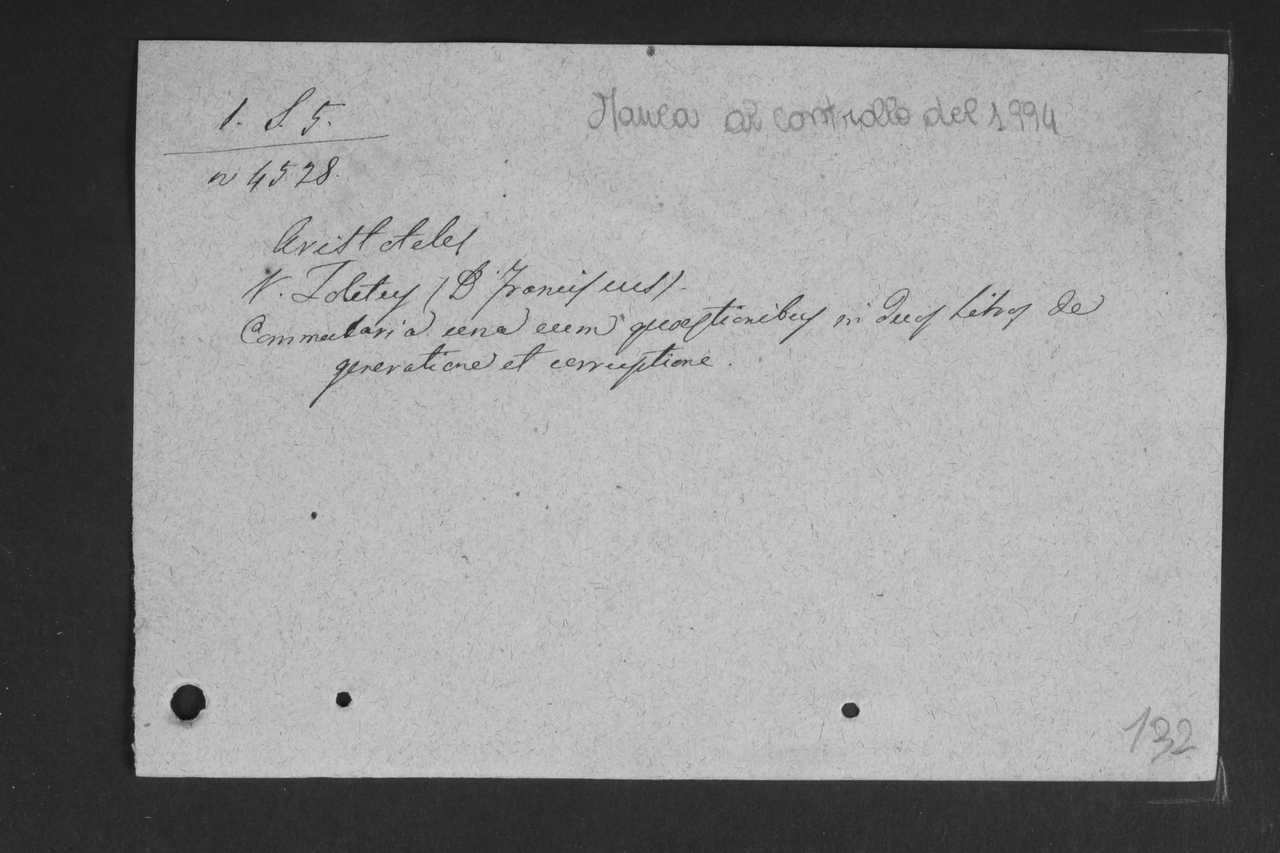 1. S. 5.
Manca al controllo del 1994
n 4528.
Aristoteles
V. Toletus (D. Franciscus).
Commentaria una cum quaestionibus in duos libros de
generatione et corruptione.
132